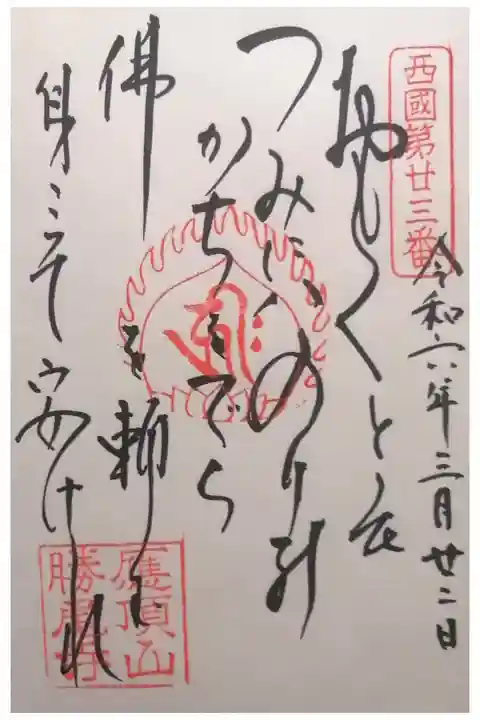 西國第廿三番
令和六年三月廿二日
おもくとも
つみにハのりの
かちをでら
佛を頼む
身こそ安けれ
應頂山
勝尾寺